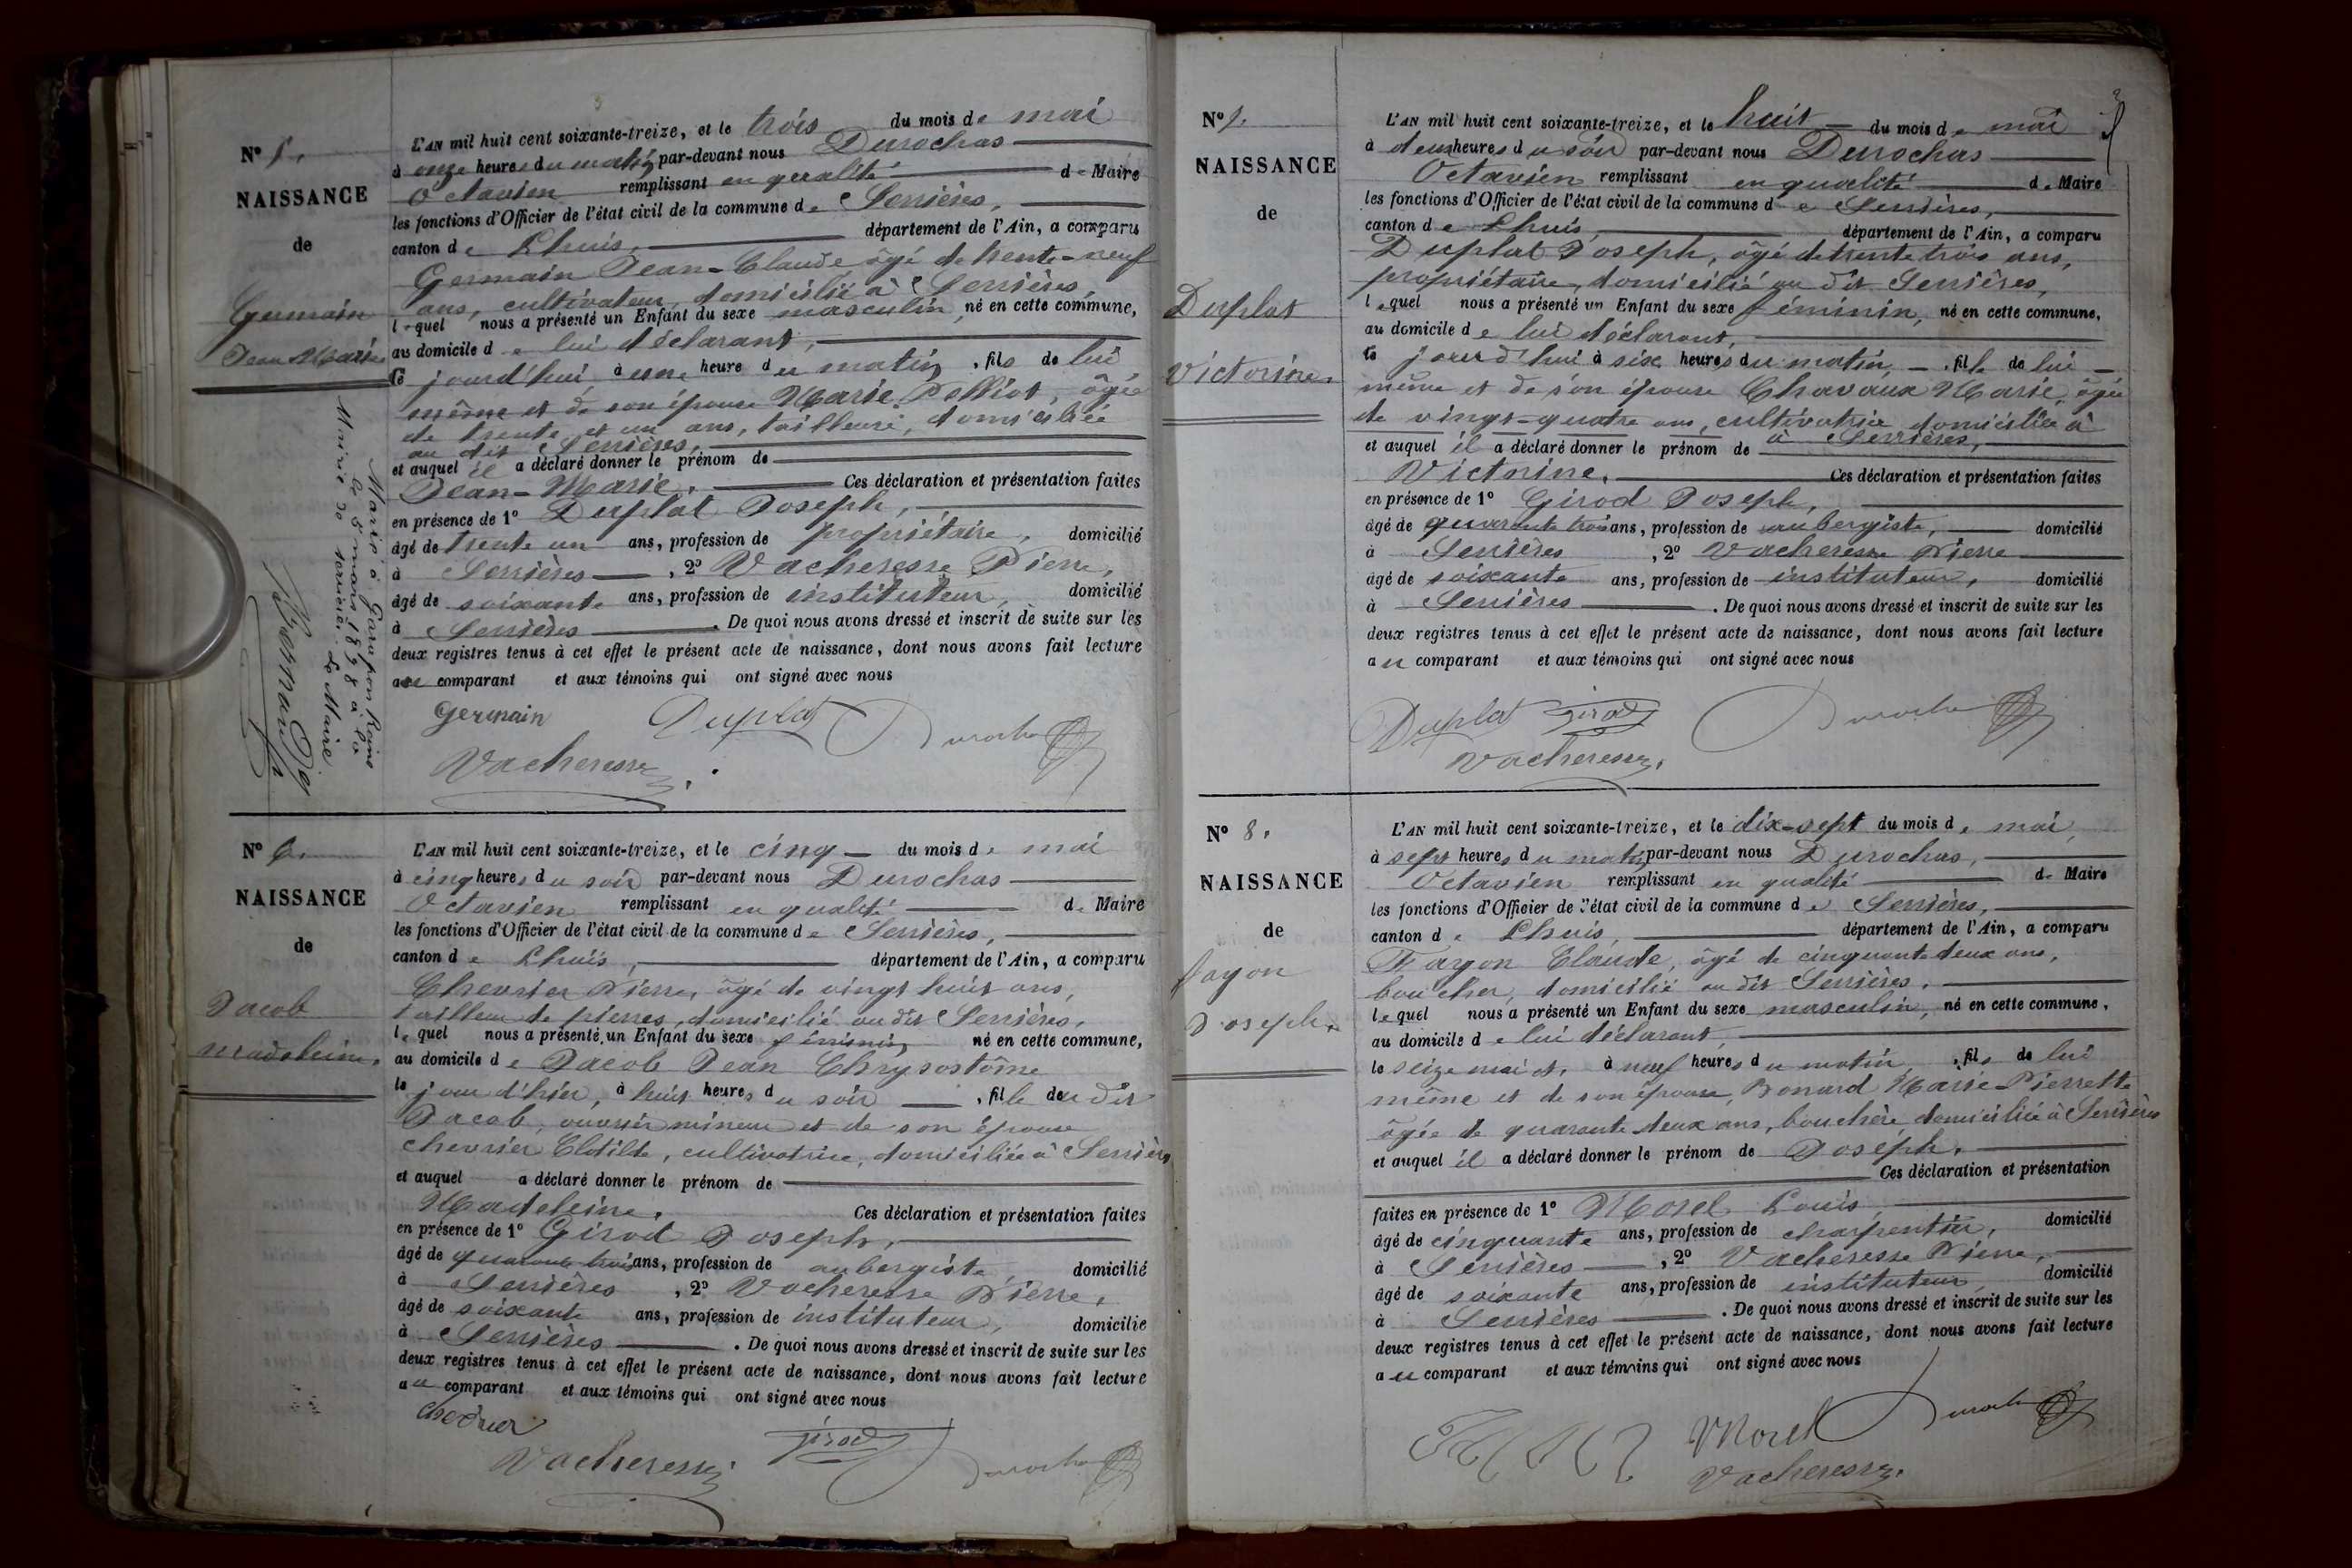 N° 5.
NAISSANCE
de
Germain
Jean Marie
L'AN mil huit cent soixante-treize, et le trois du mois de mai
à onze heures du matin par-devant nous Durochas
Octavien remplissant en qualité de Maire
les fonctions d'Officier de l'état civil de la commune de Serrières,
canton de Lhuis, département de l'Ain, a comparu
Germain Jean-Claude âgé de trente-neuf
ans, cultivateur, domicilié à Serrières,
lequel nous a présenté un Enfant du sexe masculin, né en cette commune,
au domicile de lui déclarant,
ce jourd'hui à une heure du matin, fils de lui
même et de son épouse Marie Pelliot, âgée
de trente et un ans, tailleuse, domiciliée
au dit Serrières,
et auquel il a déclaré donner le prénom de
Jean-Marie. Ces déclaration et présentation faites
en présence de 1° Duplat Joseph,
âgé de trente un ans, profession de propriétaire, domicilié
à Serrières, 2° Vacheresse Pierre,
âgé de soixante ans, profession de instituteur, domicilié
à Serrières. De quoi nous avons dressé et inscrit de suite sur les
deux registres tenus à cet effet le présent acte de naissance, dont nous avons fait lecture
au comparant et aux témoins qui ont signé avec nous
Germain Duplat Durochas
Vacheresse
Marié à Garapon Reine
le 5 mars 1898 à la
Mairie de Serrières. Le Maire
N° 6.
NAISSANCE
de
Jacob
Madeleine.
L'AN mil huit cent soixante-treize, et le cinq du mois de mai
à cinq heures du soir par-devant nous Durochas
Octavien remplissant en qualité de Maire
les fonctions d'Officier de l'état civil de la commune de Serrières,
canton de Lhuis, département de l'Ain, a comparu
Chevrier Pierre, âgé de vingt huit ans,
tailleur de pierres, domicilié au dit Serrières,
lequel nous a présenté un Enfant du sexe féminin né en cette commune,
au domicile de Jacob Jean Chrysostôme
le jour d'hier, à huit heures du soir, fille du dit
Jacob, ouvrier mineur et de son épouse
Chevrier Clotilde, cultivatrice, domiciliée à Serrières
et auquel a déclaré donner le prénom de
Madeleine. Ces déclaration et présentation faites
en présence de 1° Girod Joseph,
âgé de quarante trois ans, profession de aubergiste, domicilié
à Serrières, 2° Vacheresse Pierre,
âgé de soixante ans, profession de instituteur, domicilié
à Serrières. De quoi nous avons dressé et inscrit de suite sur les
deux registres tenus à cet effet le présent acte de naissance, dont nous avons fait lecture
au comparant et aux témoins qui ont signé avec nous
Chevrier
Vacheresse Girod Durochas
N° 7.
NAISSANCE
de
Duplat
Victorine.
L'AN mil huit cent soixante-treize, et le huit du mois de mai
à deux heures du soir par-devant nous Durochas
Octavien remplissant en qualité de Maire
les fonctions d'Officier de l'état civil de la commune de Serrières,
canton de Lhuis, département de l'Ain, a comparu
Duplat Joseph, âgé de trente trois ans,
propriétaire, domicilié au dit Serrières,
lequel nous a présenté un Enfant du sexe féminin, né en cette commune,
au domicile de lui déclarant,
ce jourd'hui à six heures du matin, fille de lui
même et de son épouse Chavaux Marie, âgée
de vingt-quatre ans, cultivatrice domiciliée à
et auquel il a déclaré donner le prénom de à Serrières,
Victorine. Ces déclaration et présentation faites
en présence de 1° Girod Joseph,
âgé de quarante trois ans, profession de aubergiste, domicilié
à Serrières, 2° Vacheresse Pierre
âgé de soixante ans, profession de instituteur, domicilié
à Serrières. De quoi nous avons dressé et inscrit de suite sur les
deux registres tenus à cet effet le présent acte de naissance, dont nous avons fait lecture
au comparant et aux témoins qui ont signé avec nous
Duplat Girod Durochas
Vacheresse.
N° 8.
NAISSANCE
de
Fayon
Joseph.
L'AN mil huit cent soixante-treize, et le dix-sept du mois de mai,
à sept heures du matin par-devant nous Durochas,
Octavien remplissant en qualité de Maire
les fonctions d'Officier de l'état civil de la commune de Serrières,
canton de Lhuis, département de l'Ain, a comparu
Fayon Claude, âgé de cinquante deux ans,
boucher, domicilié au dit Serrières.
lequel nous a présenté un Enfant du sexe masculin, né en cette commune,
au domicile de lui déclarant,
le seize mai ct, à neuf heures du matin, fils de lui
même et de son épouse, Bonard Marie-Pierrette
âgée de quarante deux ans, bouchère domiciliée à Serrières
et auquel il a déclaré donner le prénom de Joseph.
Ces déclaration et présentation
faites en présence de 1° Morel Louis,
âgé de cinquante ans, profession de charpentier, domicilié
à Serrières, 2° Vacheresse Pierre,
âgé de soixante ans, profession de instituteur, domicilié
à Serrières. De quoi nous avons dressé et inscrit de suite sur les
deux registres tenus à cet effet le présent acte de naissance, dont nous avons fait lecture
au comparant et aux témoins qui ont signé avec nous
Morel Durochas
Vacheresse.